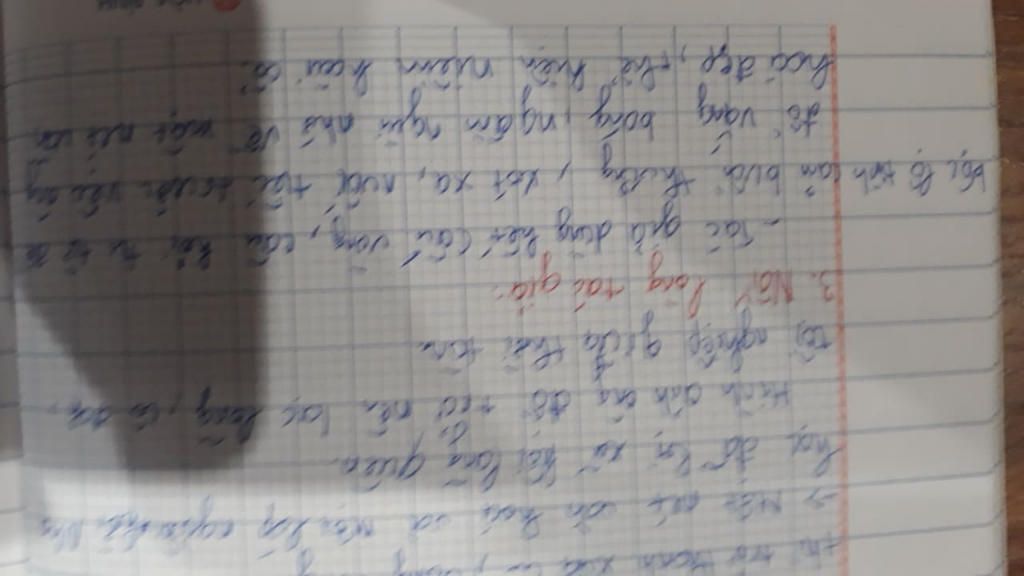 thì trở thành xưa cũ,
→ Một nét văn hoá và một lớp nghệ sĩ Nho
học đã bị xã hội lãng quên.
Hình ảnh ông đồ trở nên lạc lõng, cô đơn,
tội nghiệp giữa thời tân.
3. Nỗi lòng tác giả:
- Tác giả dùng hết câu vòng, câu hỏi tu từ để
bộc lộ tình cảm buồn thương, xót xa, nuối tiếc trước việc ông
đồ vắng bóng, ngậm ngùi nhớ về một nét văn
hoá đẹp, thể hiện niềm hoài cổ.